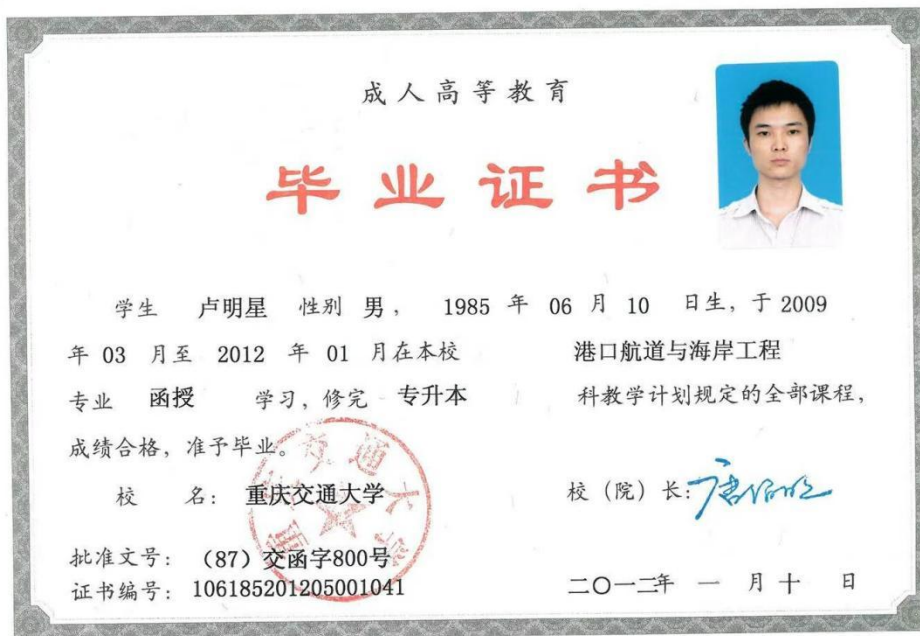 成人高等教育
毕业证书
学生 卢明星 性别 男， 1985 年 06 月 10 日生，于 2009
年 03 月至 2012 年 01 月在本校 港口航道与海岸工程
专业 函授 学习，修完 专升本 科教学计划规定的全部课程，
成绩合格，准予毕业。
校 名： 重庆交通大学 校（院）长：唐伯明
批准文号： （87）交函字800号
证书编号： 106185201205001041 二〇一二年 一 月 十 日
重庆交通大学